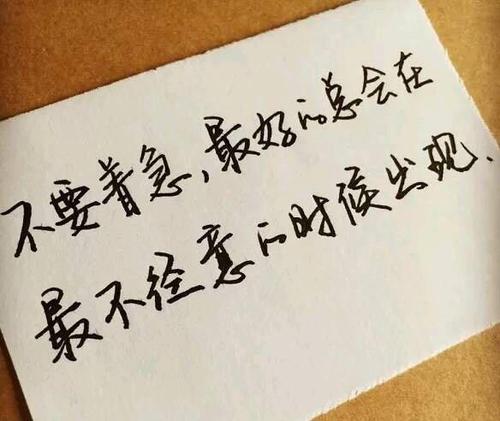 不要着急,最好的总会在
最不经意的时候出现.